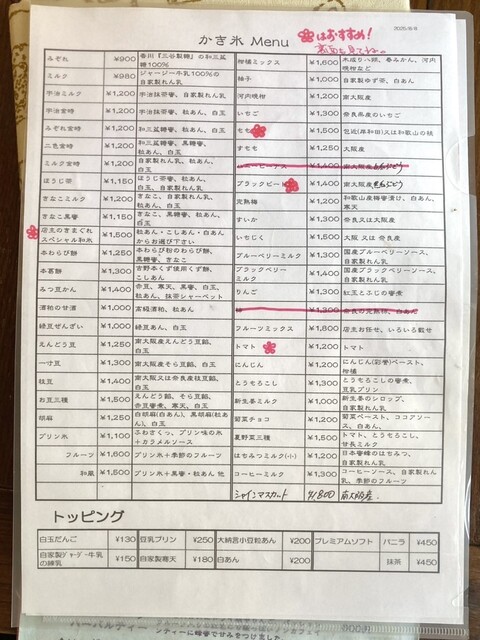 2025/8/8
かき氷 Menu
はおすすめ!
裏面も見てね。
みぞれ ¥900 香川『三谷製糖』の和三盆糖100%
ミルク ¥980 ジャージー牛乳100%の自家製れん乳
宇治ミルク ¥1,200 宇治抹茶蜜、自家製れん乳
宇治金時 ¥1,200 宇治抹茶蜜、粒あん、白玉
みぞれ金時 ¥1,200 和三盆糖蜜、粒あん、白玉
二色金時 ¥1,200 和三盆糖蜜、黒糖蜜、粒あん、白玉
ミルク金時 ¥1,200 自家製れん乳、粒あん、白玉
ほうじ茶 ¥1,150 ほうじ茶蜜、粒あん、白玉
きなこミルク ¥1,200 きなこ、自家製れん乳、白玉
きなこ黒蜜 ¥1,150 きなこ、黒糖蜜、粒あん、白玉
店主のきまぐれスペシャル和氷 ¥1,500 粒あん・こしあん・白あんからお選び下さい
本わらび餅 ¥1,250 本わらび粉のわらび餅、黒糖蜜、きなこ
本葛餅 ¥1,300 吉野本くず使用くず餅、こしあん
みつ豆かん ¥1,400 赤豆、寒天、黒蜜、白玉、粒あん、抹茶シャーベット
濃粕の甘酒 ¥1,000 高級酒粕、粒あん
緑豆ぜんざい ¥1,000 緑豆あん、白玉
えんどう豆 ¥1,250 南大阪産えんどう豆餡、白玉
一寸豆 ¥1,300 南大阪産そら豆餡、白玉
枝豆 ¥1,400 南大阪又は奈良産枝豆餡、白玉
お豆三種 ¥1,500 えんどう餡、そら豆餡、赤豆蜜煮、寒天、白玉
胡麻 ¥1,250 白胡麻(白あん)、黒胡麻(粒あん)、白玉
プリン氷 ¥1,100 ふわさくっ、プリン味の氷+カラメルソース
フルーツ ¥1,600 プリン氷+季節のフルーツ
和風 ¥1,500 プリン氷+黒蜜・粒あん 他
柑橘ミックス ¥1,600 木成り八朔、春みかん、河内晩柑など
柚子 ¥1,000 自家製ゆず茶、白あん
河内晩柑 ¥1,200 南大阪産
いちご ¥1,300 奈良県産のいちご
もも ¥1,500 包近(岸和田)又は和歌山の桃
すもも ¥1,250 大阪産
¥1,400
ブラックビート ¥1,400 南大阪産黒ぶどう
完熟梅 ¥1,200 和歌山産梅蜜漬け、白あん、寒天
すいか ¥1,300 奈良又は大阪産
いちじく ¥1,500 大阪 又は 奈良産
ブルーベリーミルク ¥1,300 国産ブルーベリーソース、自家製れん乳
ブラックベリーミルク ¥1,400 国産ブラックベリーソース、自家製れん乳
りんご ¥1,300 紅玉とふじの蜜煮
¥1,300
フルーツミックス ¥1,800 店主お任せ、いろいろ載せ
トマト ¥1,200 トマト
にんじん ¥1,200 にんじん(彩誉)ペースト、柑橘
とうもろこし ¥1,300 とうもろこしの蜜煮、豆乳プリン
新生姜ミルク ¥1,000 新生姜のシロップ、自家製れん乳
菊菜チョコ ¥1,200 菊菜ペースト、ココアソース、白あん、
夏野菜三種 ¥1,500 トマト、とうもろこし、甘長ミルク
はちみつミルク(小) ¥1,200 日本蜜蜂のはちみつ、自家製れん乳
コーヒーミルク ¥1,300 コーヒーソース、自家製れん乳、季節のフルーツ
シャインマスカット ¥1,800 南大阪産。
トッピング
白玉だんご ¥130 豆乳プリン ¥250 大納言小豆粒あん ¥200 プレミアムソフト バニラ ¥450
自家製ジャージー牛乳の練乳 ¥150 自家製寒天 ¥180 白あん ¥200 抹茶 ¥450